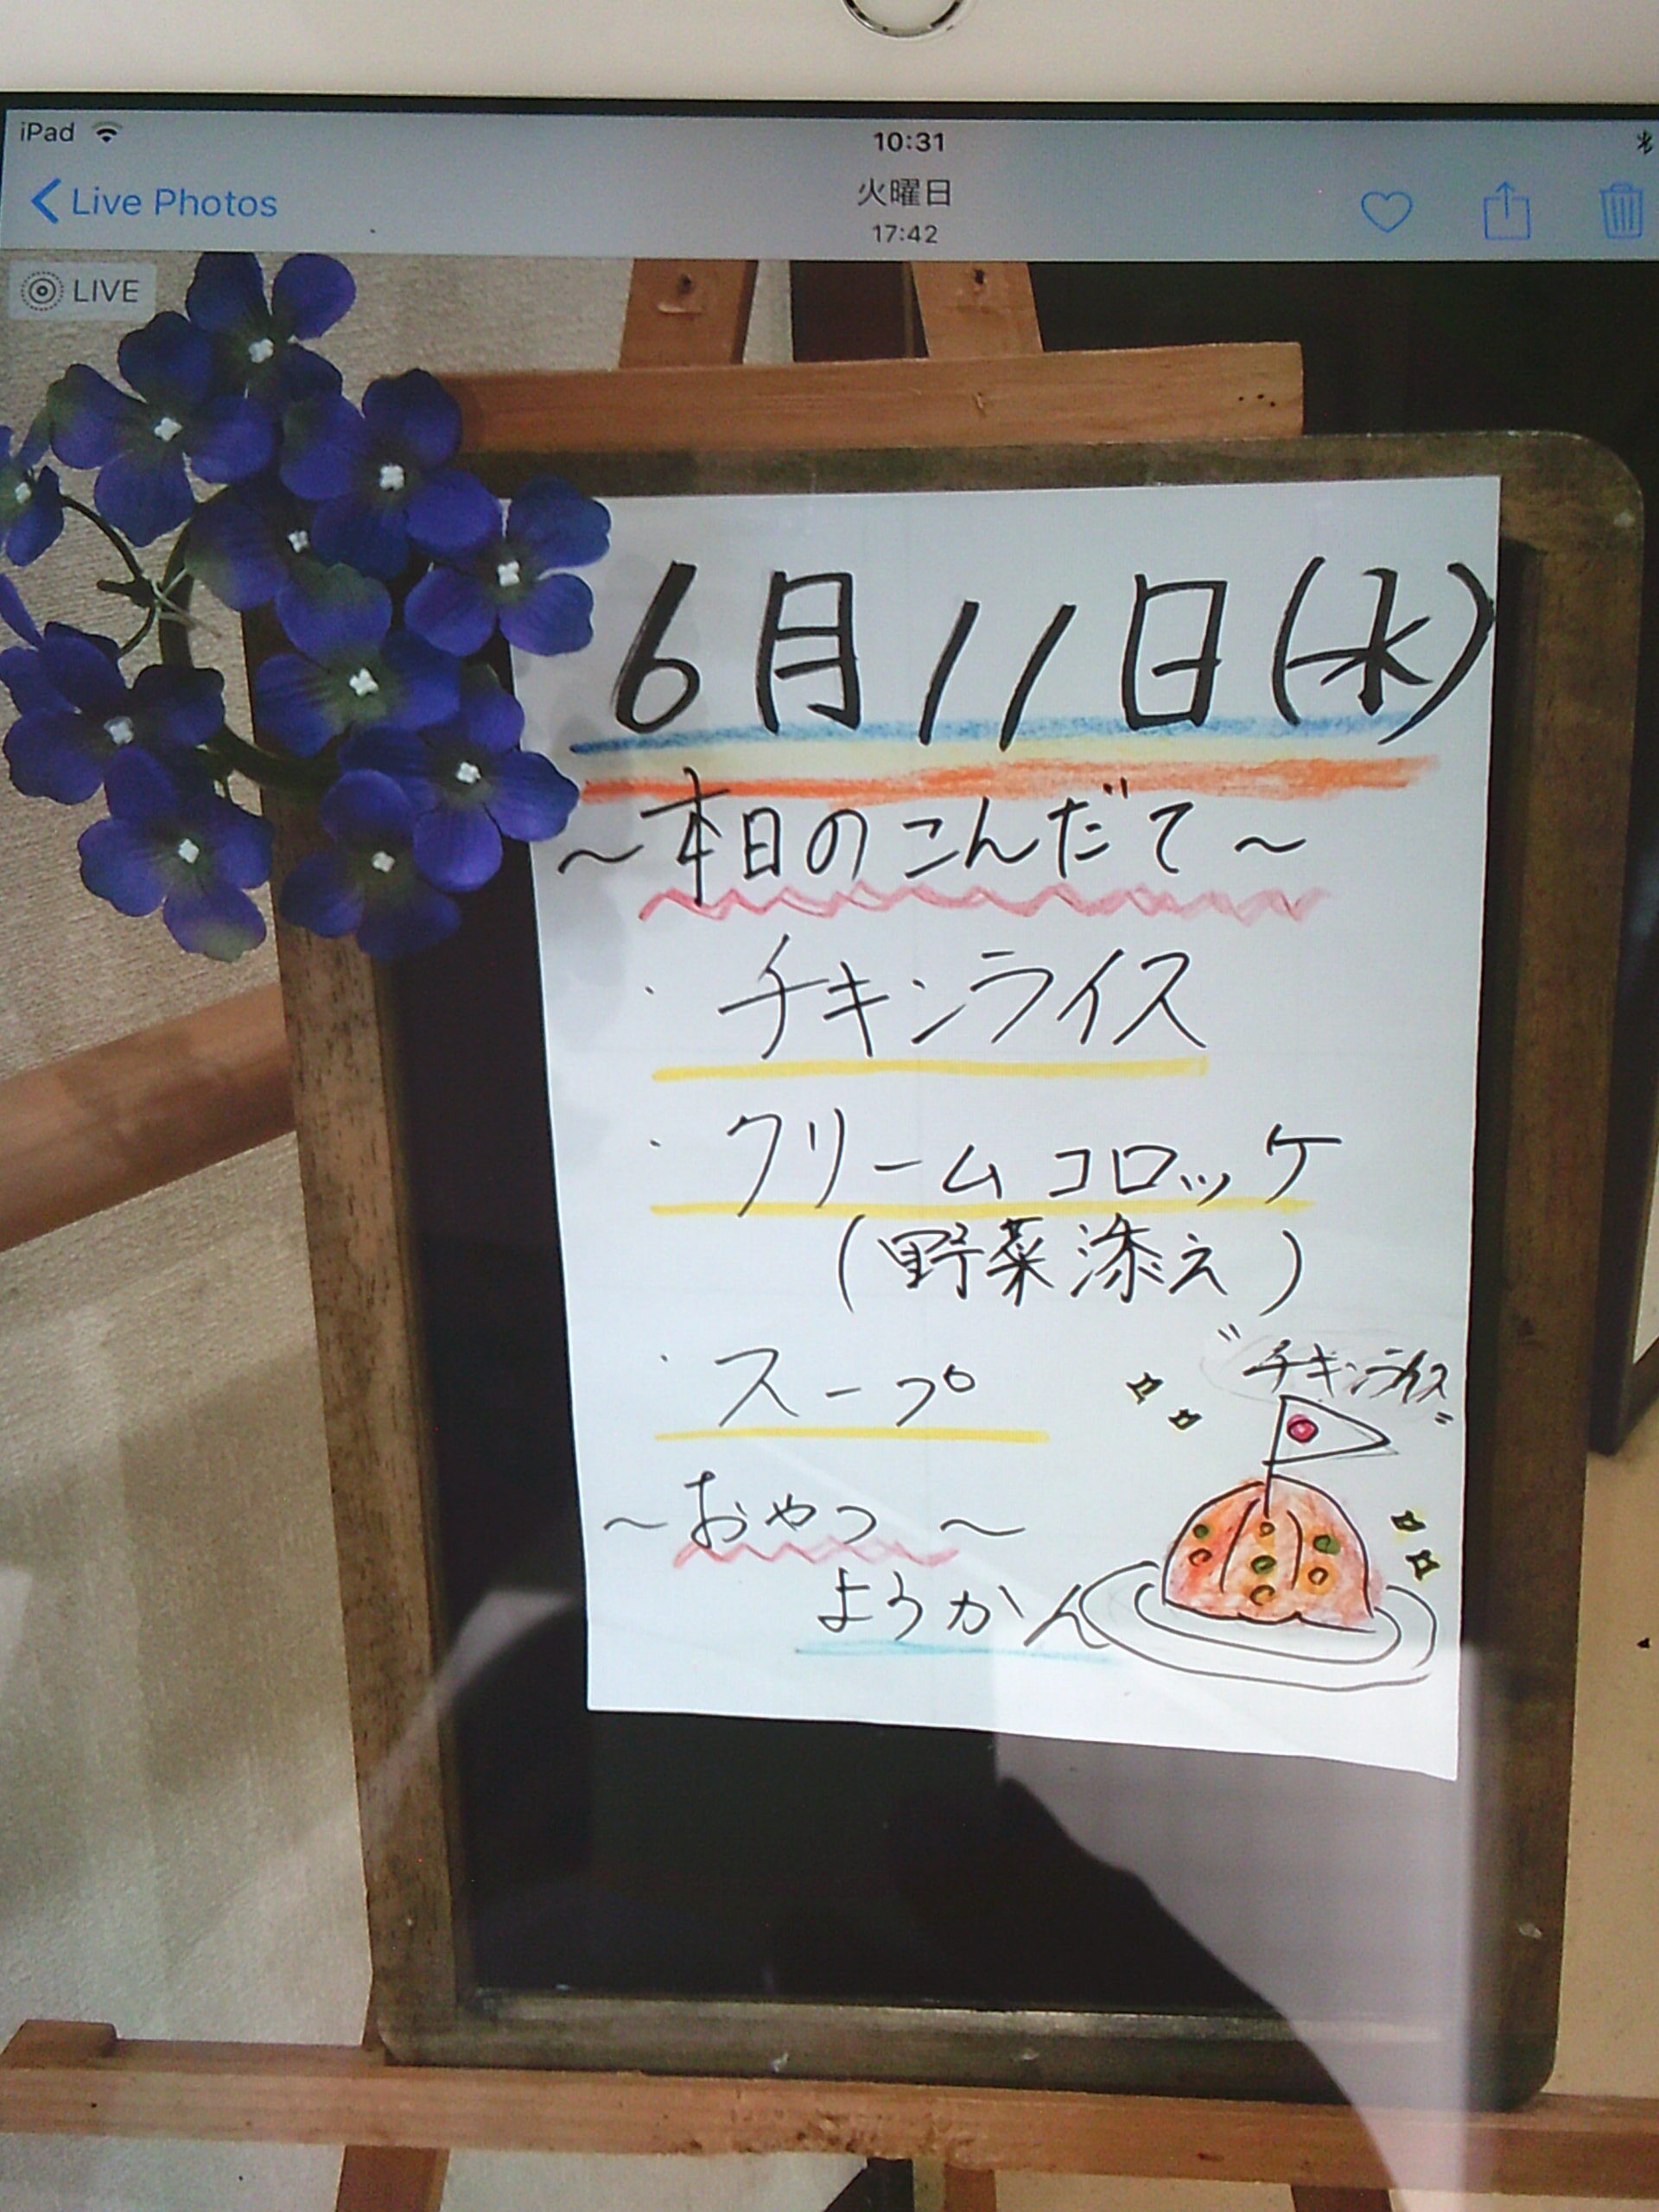 iPad
10:31
Live Photos
火曜日
17:42
LIVE
6月11日(水)
～本日のこんだて～
・チキンライス
・クリームコロッケ
(野菜添え)
・スープ
"チキンライス"
～おやつ～
ようかん